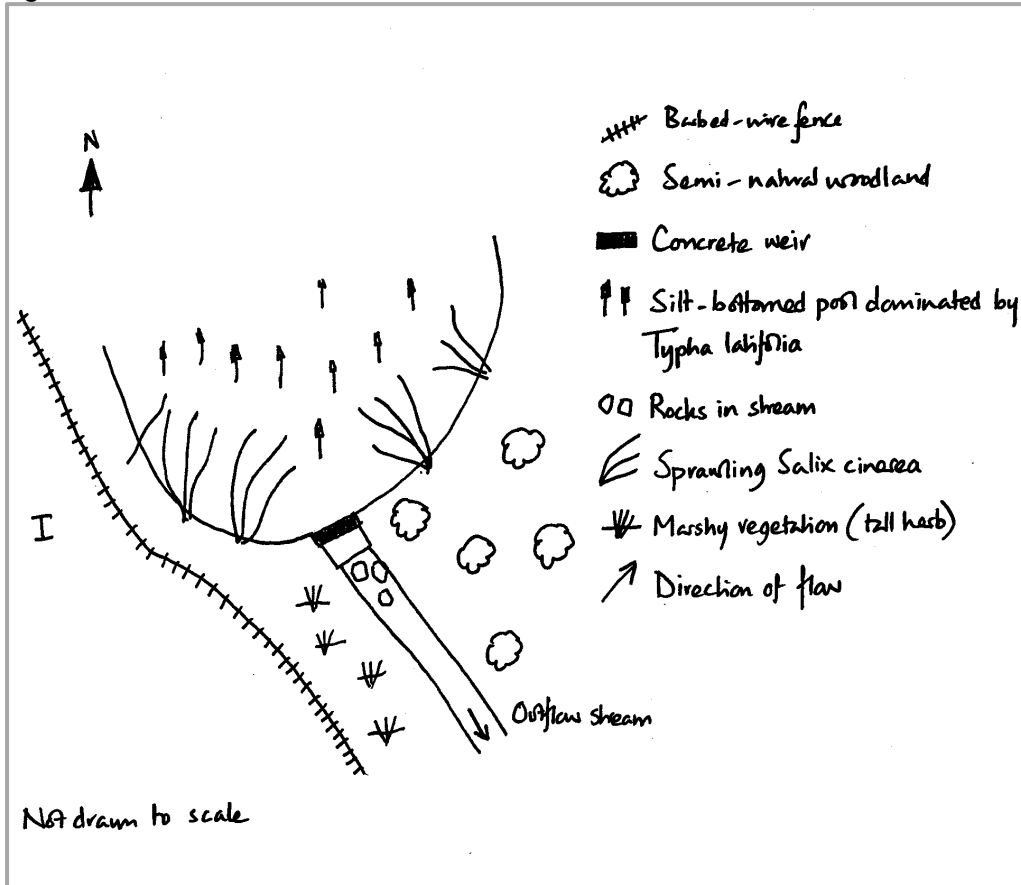 N
Barbed-wire fence
Semi-natural woodland
Concrete weir
Silt-bottomed pool dominated by
Typha latifolia
Rocks in stream
Sprawling Salix cinerea
I
Marshy vegetation (tall herb)
Direction of flow
Outflow stream
Not drawn to scale